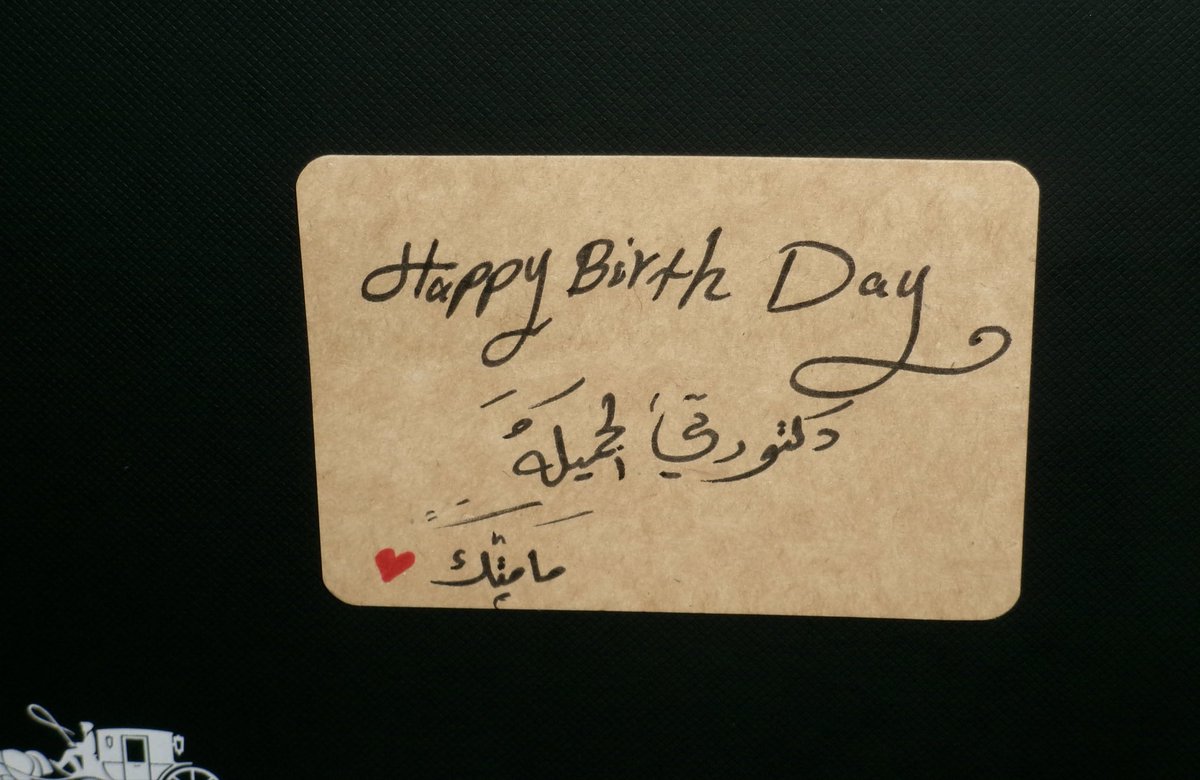 Happy Birth Day
دكتورتي الجميلة
مامتك